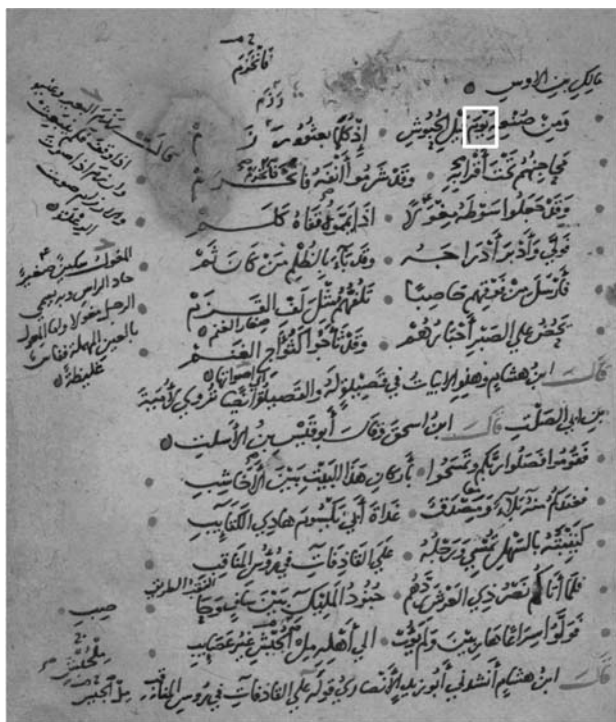 فانخزم
رزم
مالك بن الاوس
ومن صنعه يوم فيل الحبوش إذ كلما بعثوه رزم
محاجنهم تحت أقرابه وقد شرموا أنفه فانخرم
وقد جعلوا سوطه مغولا اذا يمموه قفاه كلم
فولى وأدبر أدراجه وقد باء بالظلم من كان ثم
فأرسل من فوقهم حاصبا تلفهم مثل لف القزم
صغار الغنم
تحض على الصبر أحبارهم وقد ثأجوا كثؤاج الغنم
قال ابن هشام وهذه الابيات في قصيدة له والقصيدة أيضا تروى لأمية
بن ابي الصلت قال ابن اسحق وقال أبو قيس بن الأسلت
فقوموا فصلوا ربكم وتمسحوا بأركان هذا البيت بين الأخاشب
فعندكم منه بلاء ومصدق غداة أبي يكسوم هادي الكتايب
كتيبته بالسهل تمشي ورجله على القاذفات في رءوس المناقب
فلما أتاكم نصر ذي العرش ردهم جنود المليك بين ساف وحا
صب
فولوا سراعا هاربين ولم يؤب الى أهله ملحبش غير عصايب
قال ابن هشام أنشدني أبو زيد الأنصاري قوله على القاذفات في رءوس المناقب
البعير وغيره
اذا وقف فلم ينبعث
وارزم اذا صوت
المغول سكين صغير
حاد الراس
بالعين المهملة ففاس
غليظة